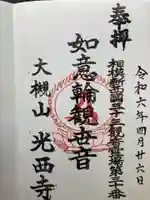 令和六年四月廿六日
奉拝
相模新西国三十三観音霊場第二十番
如意輪観世音
大槻山 光西寺